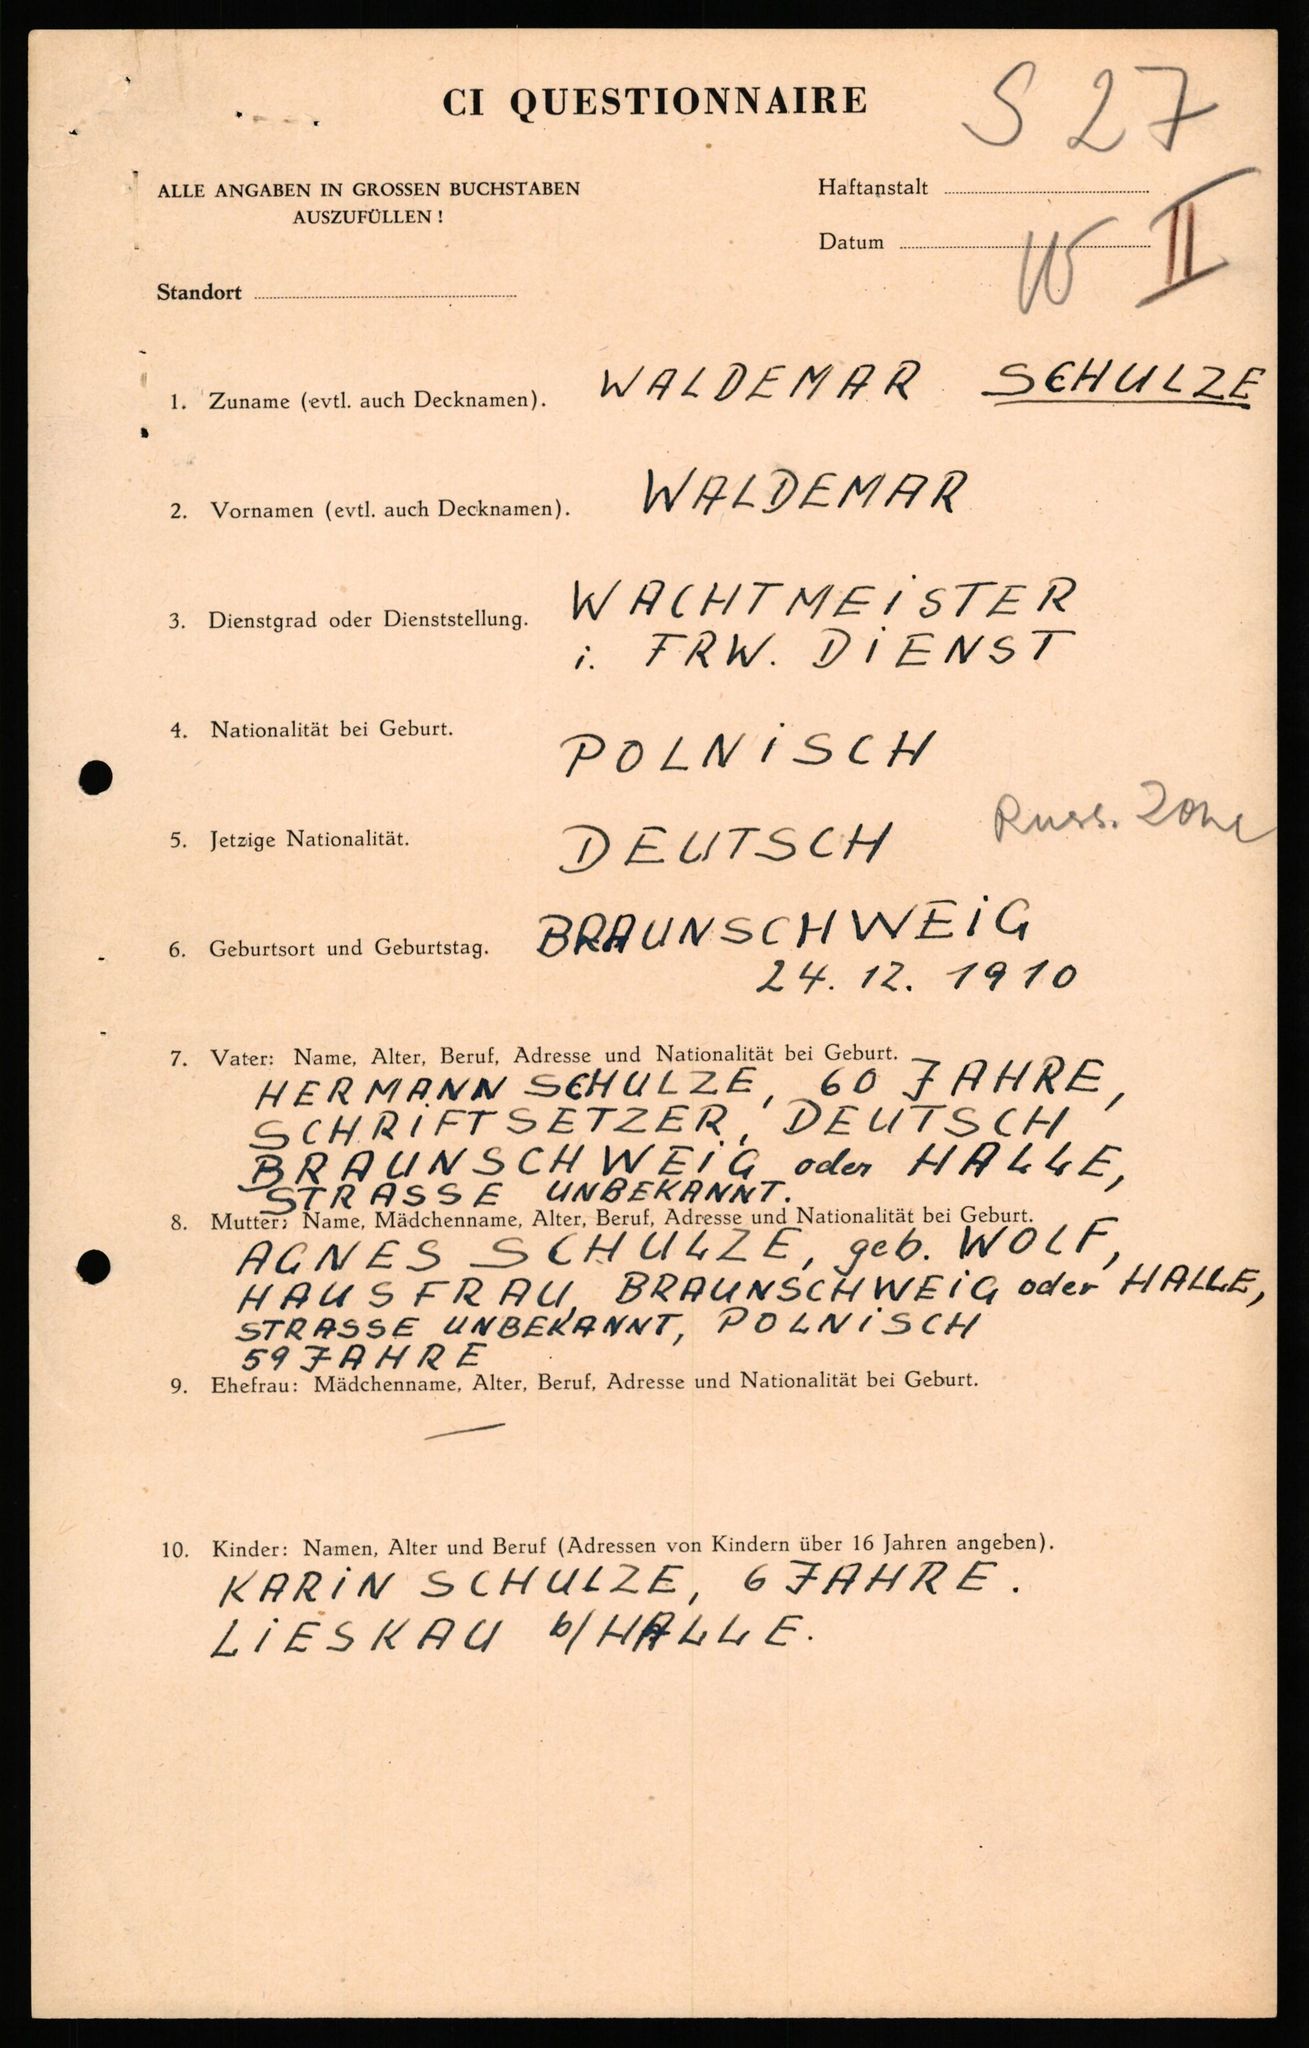 CI QUESTIONNAIRE
S 27
ALLE ANGABEN IN GROSSEN BUCHSTABEN
AUSZUFÜLLEN !
Haftanstalt
Datum
II
Standort
1. Zuname (evtl. auch Decknamen). WALDEMAR SCHULZE
2. Vornamen (evtl. auch Decknamen). WALDEMAR
3. Dienstgrad oder Dienststellung. WACHTMEiSTER
i. FRW. DiENST
4. Nationalität bei Geburt. POLNiSCH
5. Jetzige Nationalität. DEUTSCH Russ. Zone
6. Geburtsort und Geburtstag. BRAUNSCHWEiG
24. 12. 1910
7. Vater: Name, Alter, Beruf, Adresse und Nationalität bei Geburt.
HERMANN SCHULZE, 60 JAHRE,
SCHRiFTSETZER, DEUTSCH
BRAUNSCHWEiG oder HALLE,
STRASSE UNBEKANNT.
8. Mutter: Name, Mädchenname, Alter, Beruf, Adresse und Nationalität bei Geburt.
AGNES SCHULZE, geb. WOLF,
HAUSFRAU, BRAUNSCHWEiG oder HALLE,
STRASSE UNBEKANNT, POLNiSCH
59 JAHRE
9. Ehefrau: Mädchenname, Alter, Beruf, Adresse und Nationalität bei Geburt.
—
10. Kinder: Namen, Alter und Beruf (Adressen von Kindern über 16 Jahren angeben).
KARiN SCHULZE, 6 JAHRE.
LiESKAU b/HALLE.